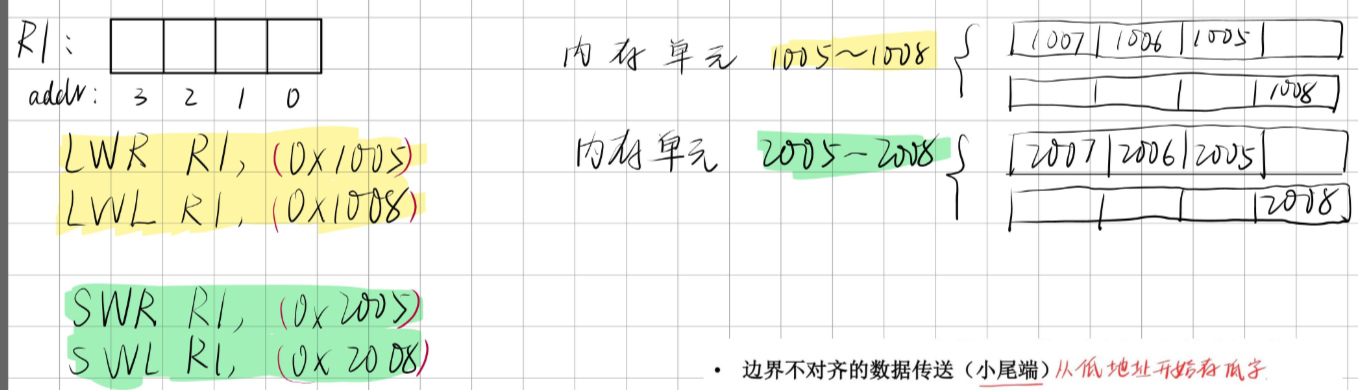 R1:
addr: 3 2 1 0
LWR R1, (0x1005)
LWL R1, (0x1008)
SWR R1, (0x2005)
SWL R1, (0x2008)
内存单元 1005~1008
1007 1006 1005
1008
内存单元 2005~2008
2007 2006 2005
2008
• 边界不对齐的数据传送（小尾端）从低地址开始存低字